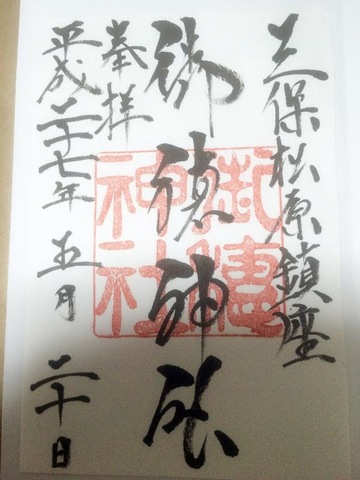 三保松原鎮座
御穂神社
奉拝
平成二十七年五月二十日
御穂
神社